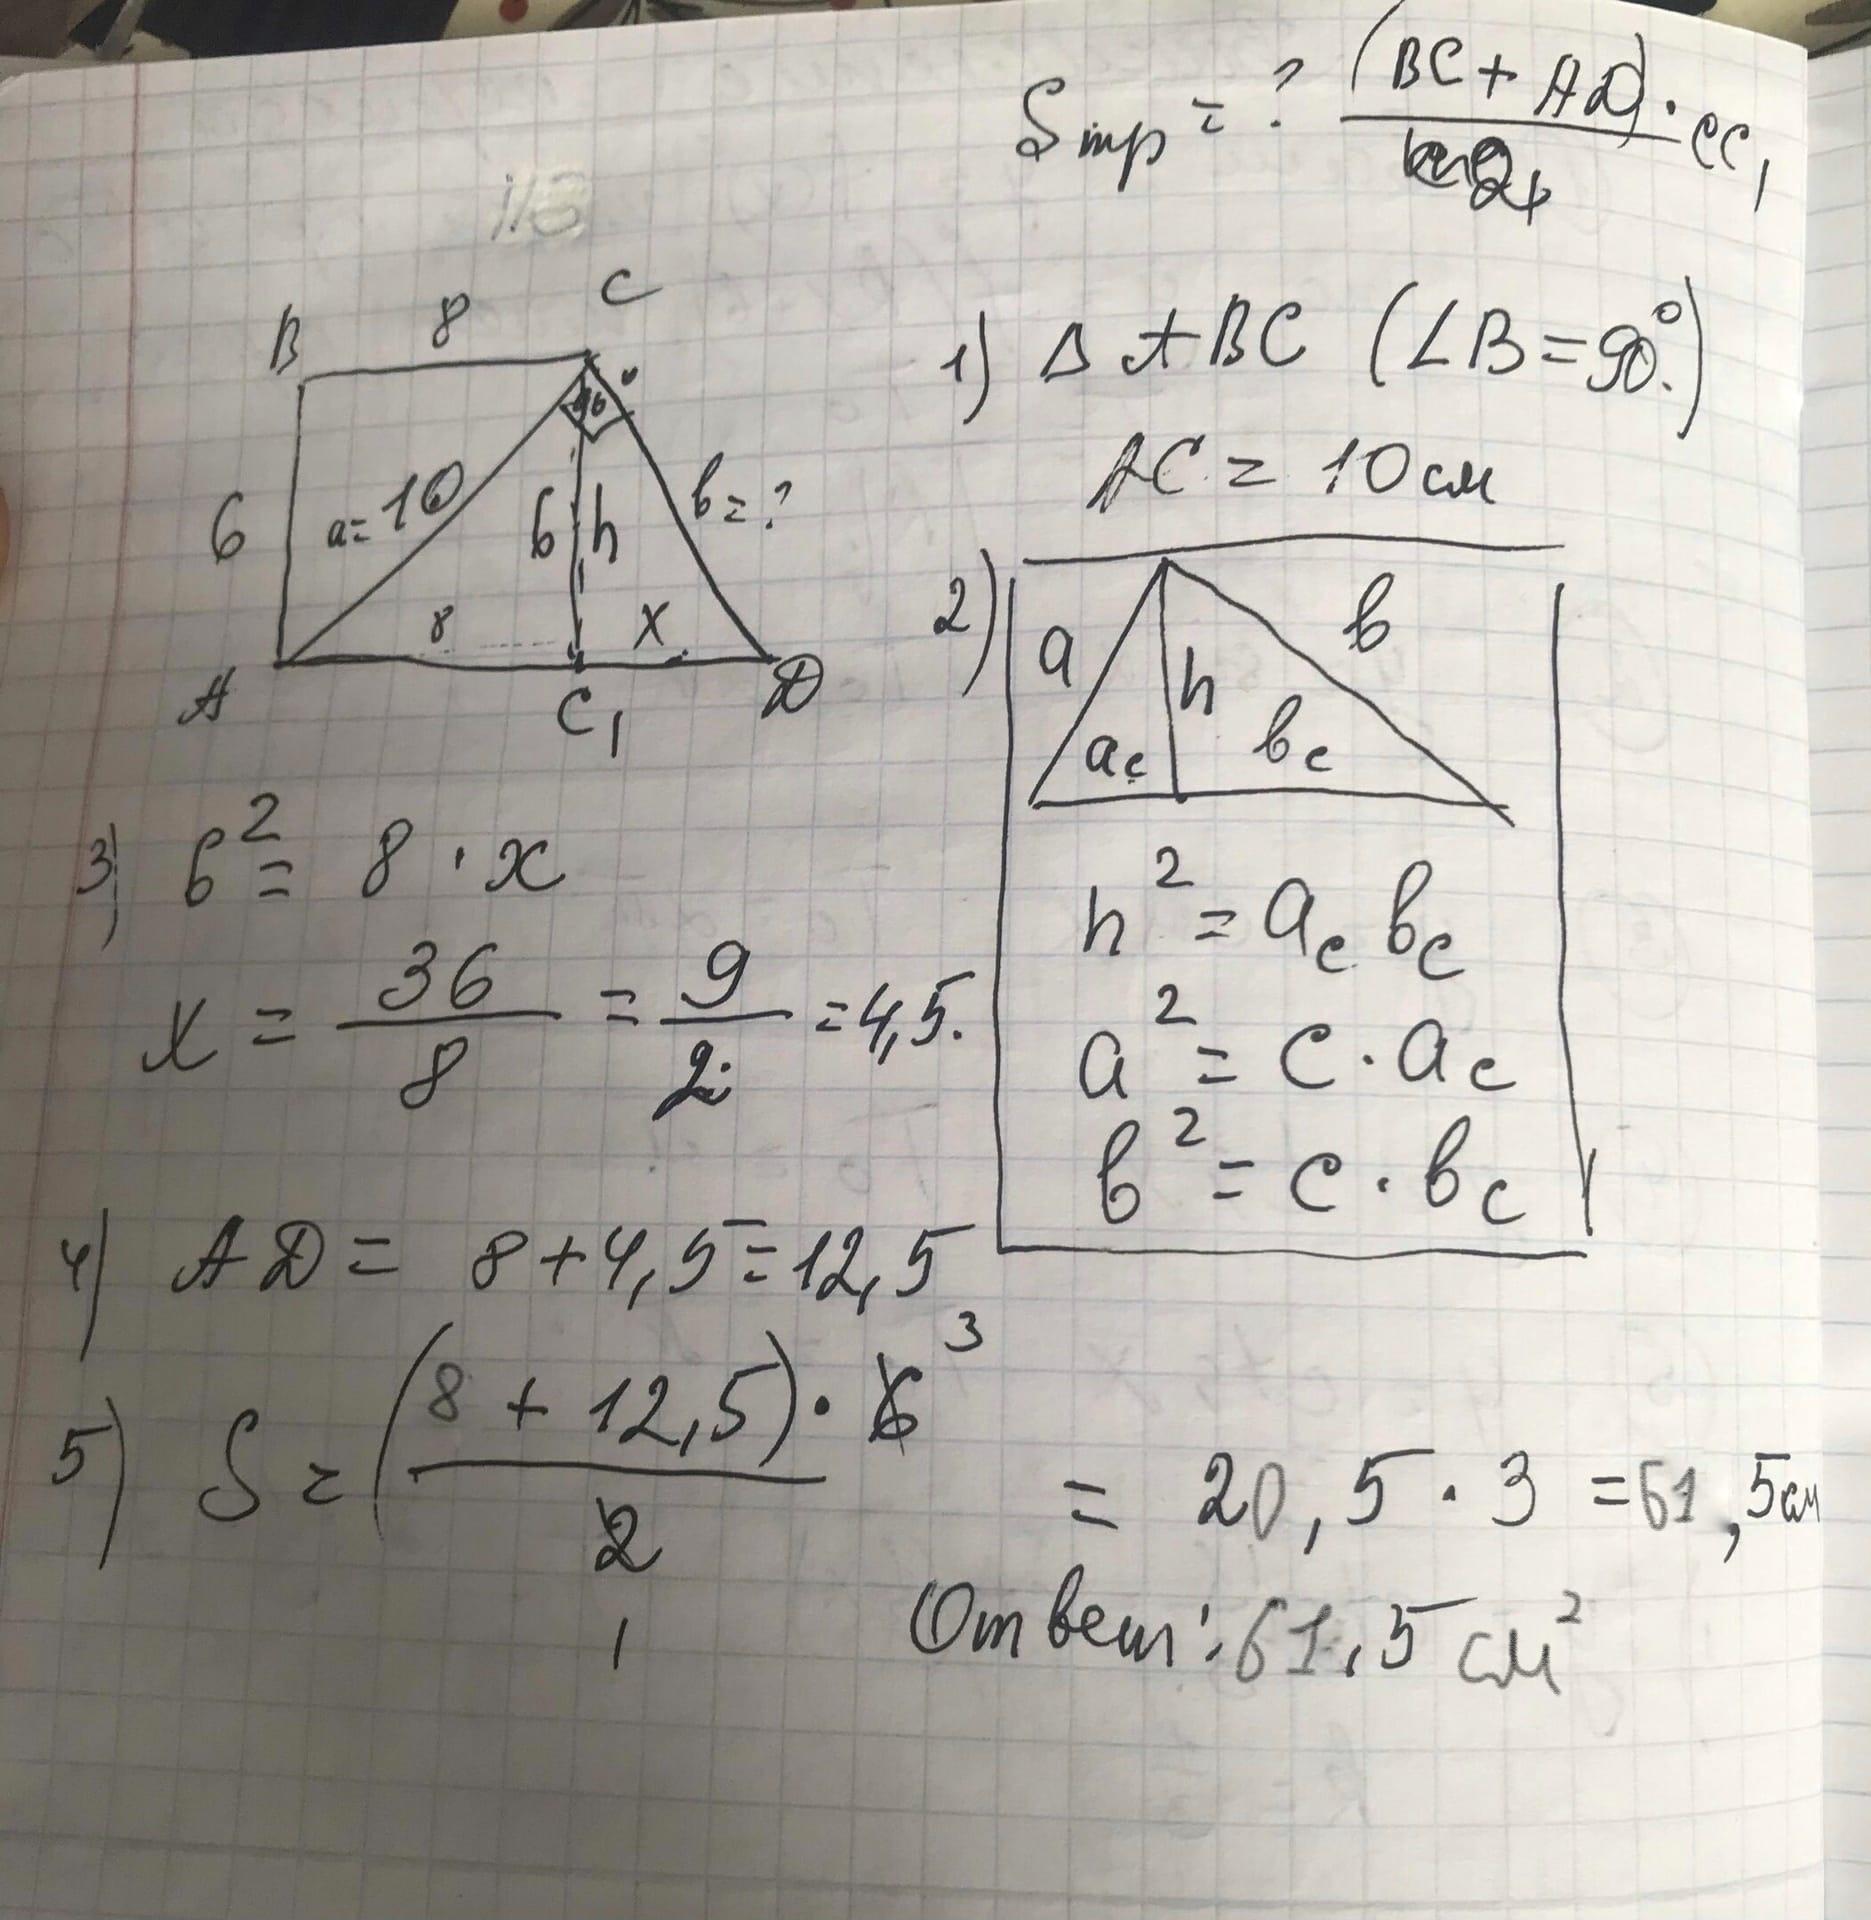 Sтр = ? (BC + AD) · CC₁ / 2
B 8 C
6 a = 10 90° 6 h b = ?
8 x
A C₁ D
1) Δ ABC (∠B = 90°)
AC = 10 см
2)
a h b
a_c b_c
h² = a_c b_c
a² = c · a_c
b² = c · b_c
3) 6² = 8 · x
x = 36/8 = 9/2 = 4,5.
4) AD = 8 + 4,5 = 12,5
5) S = (8 + 12,5) · 6 3 / 2 1 = 20,5 · 3 = 61,5 см
Ответ: 61,5 см²